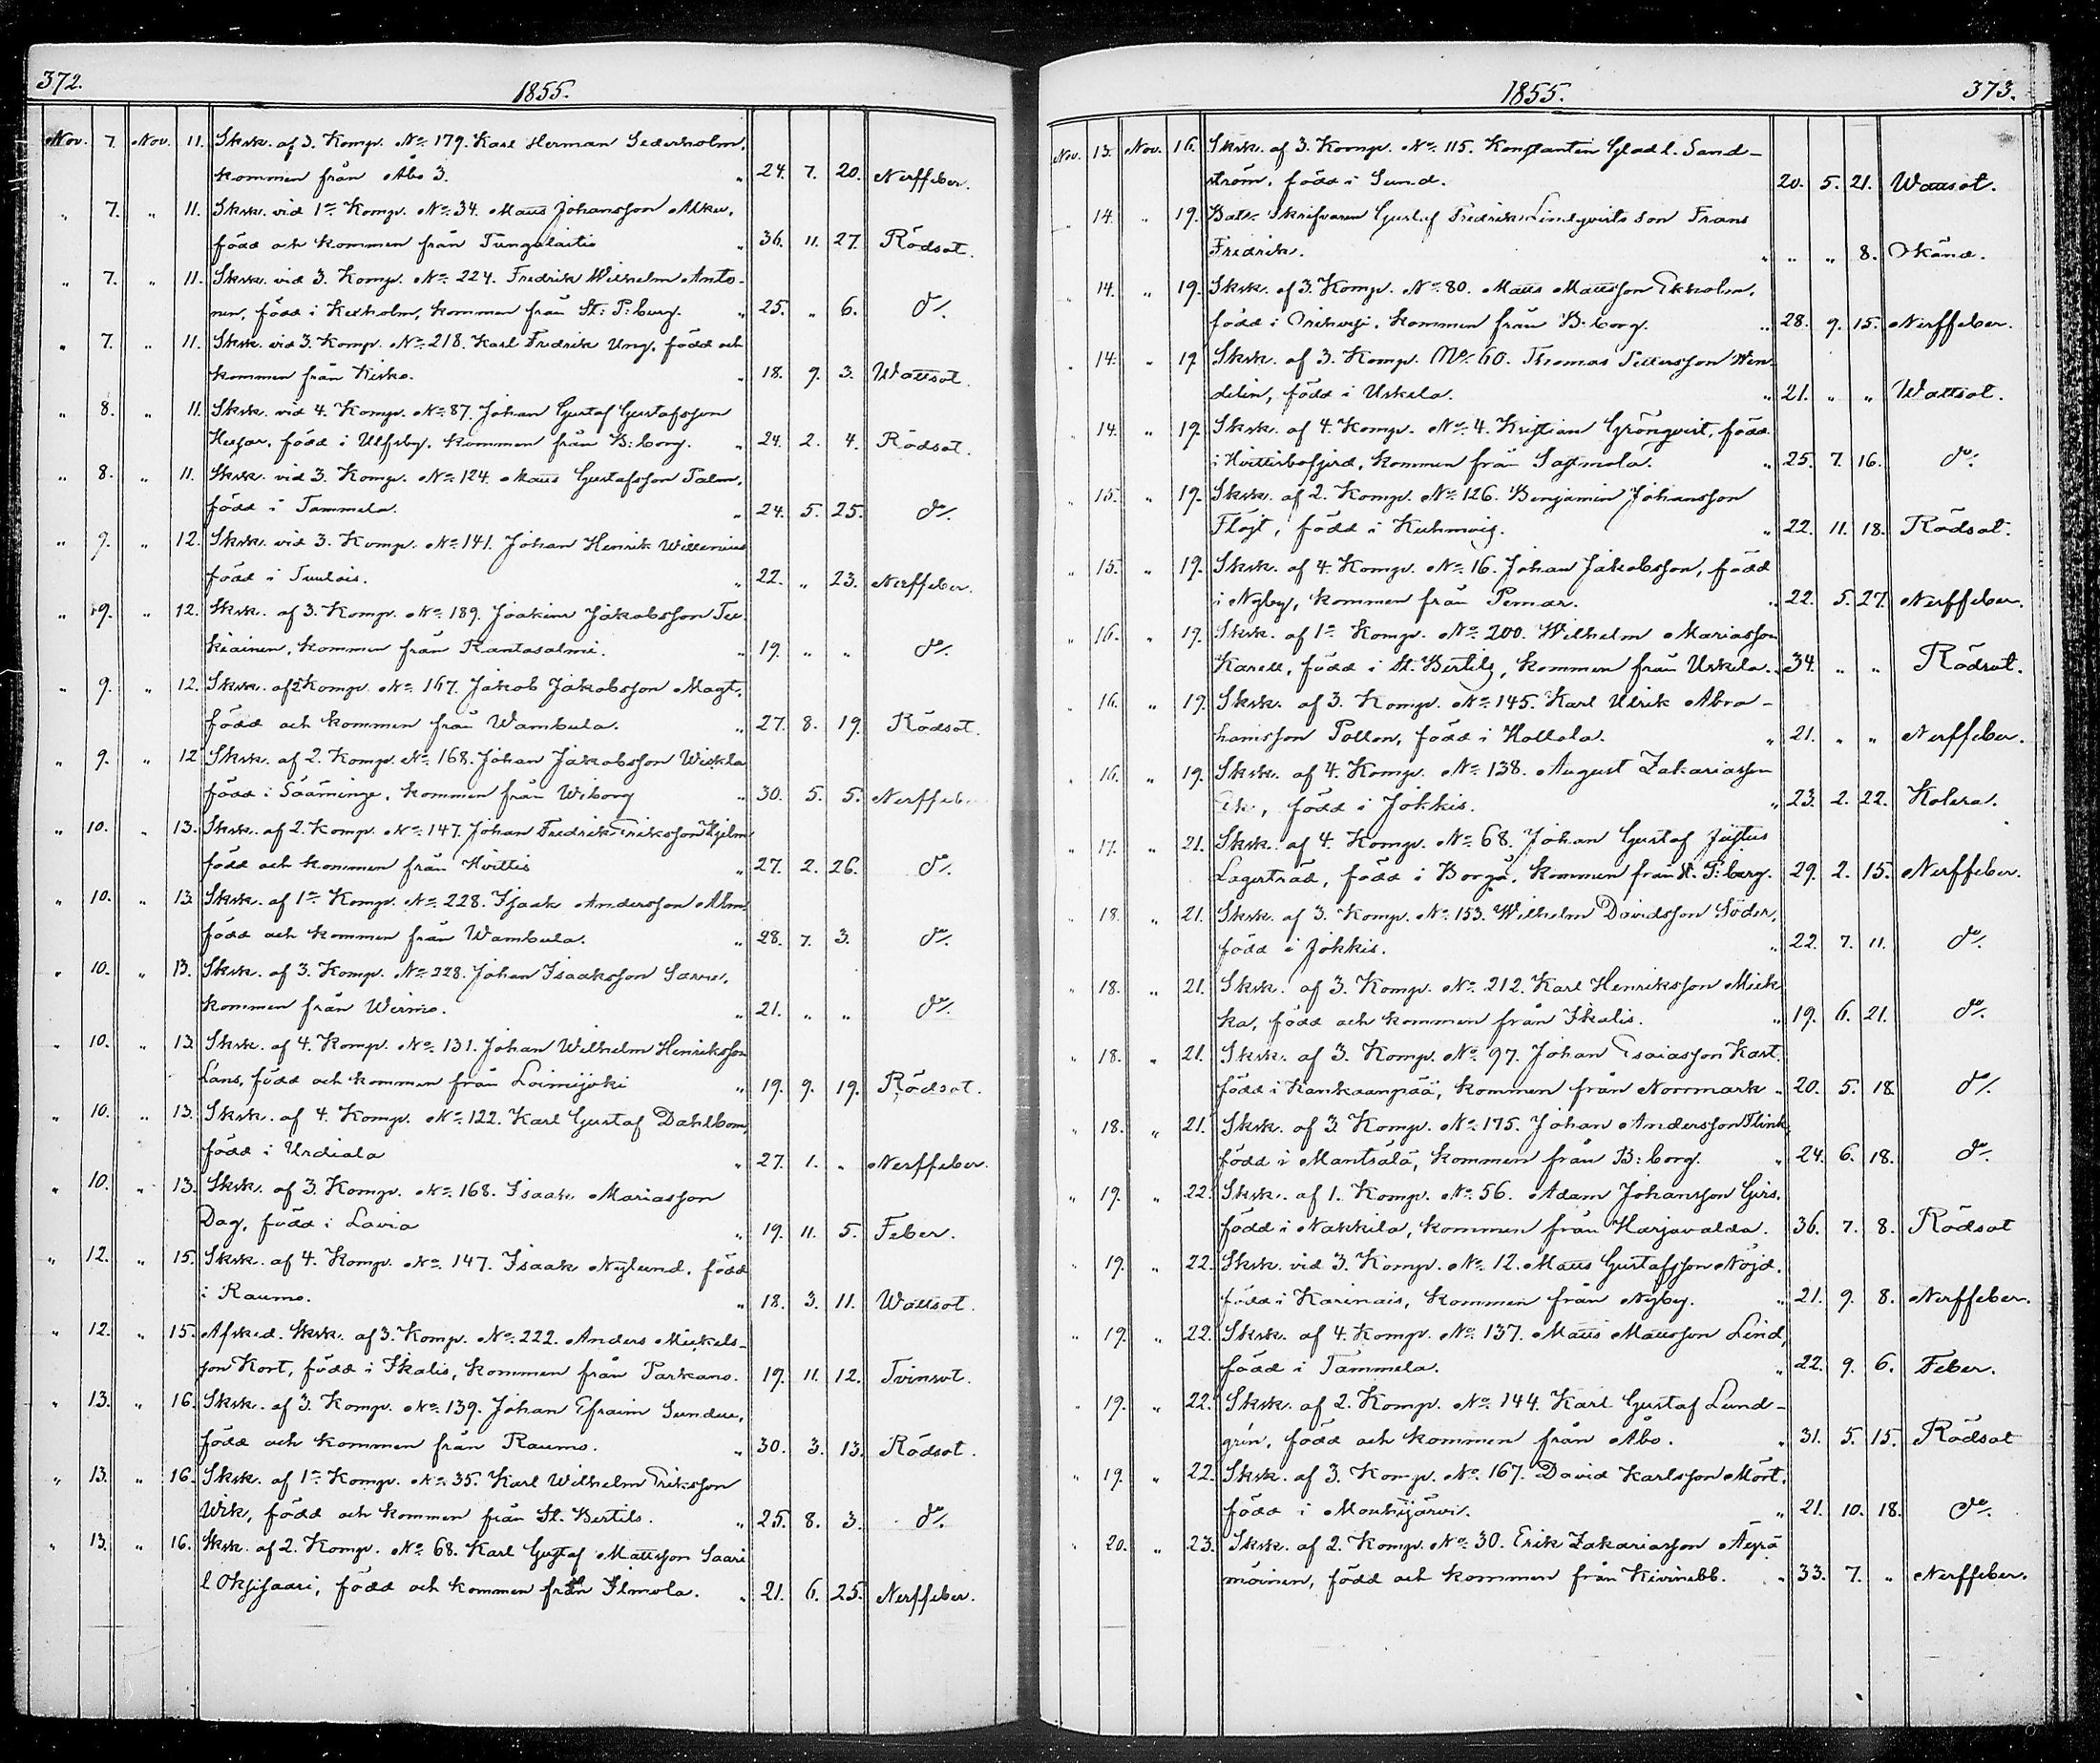 372.
1855.
Nov. 7. Nov. 11. Skrk. af 3. Komp. No. 179. Karl Herman Sederholm,
kommen från Åbo 3. " 24. 7. 20. Nerffeber.
" 7. " 11. Skrk. vid 1a Komp. No. 34. Matts Johansson Alku,
född och kommen från " 36. 11. 27. Rödsot.
" 7. " 11. Skrk. vid 3. Komp. No. 224. Fredrik Wilhelm Anto-
nen, född i Kexholm, kommen från St: P:burg. " 25. " 6. do/.
" 7. " 11. Skrk. vid 3. Komp. No. 218. Karl Fredrik Ung, född och
kommen från Kisko. " 18. 9. 3. Wattsot.
" 8. " 11. Skrk. vid 4. Komp. No. 87. Johan Gustaf Gustafsson
född i Ulfsby, kommen från B:borg. " 24. 2. 4. Rödsot.
" 8. " 11. Skrk. vid 3. Komp. No. 124. Matts Gustafsson Palm,
född i Tammela. " 24. 5. 25. do/.
" 9. " 12. Skrk. vid 3. Komp. No. 141. Johan Henrik Willenius
född i Tuulois. " 22. " 23. Nerffeber.
" 9. " 12. Skrk. af 3. Komp. No. 189. Joakim Jakobsson Tee-
kiainen, kommen från Rantasalmi. " 19. " " do/.
" 9. " 12. Skrk. af 2 Komp. No. 167. Jakob Jakobsson Magt,
född och kommen från Wambula. " 27. 8. 19. Rödsot.
" 9. " 12 Skrk. af 2. Komp. No. 168. Johan Jakobsson Wiskla
född i Sääminge, kommen från Wiborg " 30. 5. 5. Nerffeb
" 10. " 13. Skrk. af 2. Komp. No. 147. Johan Fredrik Eriksson Hjelm
född och kommen från Hvittis " 27. 2. 26. do/.
" 10. " 13. Skrk. af 1a Komp. No. 228. Isaak Andersson Alm,
född och kommen från Wambula. " 28. 7. 3. do/.
" 10. " 13. Skrk. af 3. Komp. No. 228. Johan Isaaksson
kommen från Wirmo. " 21. " " do/.
" 10. " 13. Skrk. af 4. Komp. No. 131. Johan Wilhelm Henriksson
Lans, född och kommen från Loimijoki " 19. 9. 19. Rödsot.
" 10. " 13. Skrk. af 4. Komp. No. 122. Karl Gustaf Dahlbom,
född i Urdiala " 27. 1. " Nerffeber.
" 10. " 13. Skrk. af 3. Komp. No. 168. Isaak Mariasson
Dag, född i Lavia " 19. 11. 5. Feber.
" 12. " 15. Skrk. af 4. Komp. No. 147. Isaak Nylund, född
i Raumo. " 18. 3. 11. Wattsot.
" 12. " 15. Afsked. Skrk. af 3. Komp. No. 222. Anders Mickels-
son Kort, född i Ikalis, kommen från Parkano. 19. 11. 12. Tvinsot.
" 13. " 16. Skrk. af 3. Komp. No. 139. Johan Efraim
född och kommen från Raumo. " 30. 3. 13. Rödsot.
" 13. " 16. Skrk. af 1a Komp. No. 35. Karl Wilhelm Eriksson
Wik, född och kommen från St. Bertils. " 25. 8. 3. do/.
" 13. " 16. Skrk. af 2. Komp. No. 68. Karl Gustaf Mattsson Saari
l Oksisaari, född och kommen från Ilmola. " 21. 6. 25. Nerffeber.
1855.
373.
Nov. 13. Nov. 16. Skrk. af 3. Komp. No. 115. Konstantin Glad l. Sand-
ström, född i Sund. 20. 5. 21. Wattsot.
14. " 19. Bats. Skrifvaren Gustaf Fredrik Lindqvists son Frans
Fredrik. " " " 8. Okänd.
14. " 19. Skrk. af 3. Komp. No. 80. Matts Mattsson Ekholm,
född i Orihvesi, kommen från B:borg. " 28. 9. 15. Nerffeber.
14. " 19 Skrk. af 3. Komp. No. 60. Thomas Pettersson Wen-
delin, född i Uskela. " 21. " " Wattsot.
14. " 19. Skrk. af 4. Komp. No. 4. Kristian Grönqvist, född
i Hvittisbofjerd, kommen från Sastmola. " 25. 7. 16. do/.
15. " 19. Skrk. af 2. Komp. No. 126. Benjamin Johansson
Flöjt, född i Kuhmois. " 22. 11. 18. Rödsot.
15. " 19. Skrk. af 4. Komp. No. 16. Johan Jakobsson, född
i Nyby, kommen från Pemar. " 22. 5. 27. Nerffeber.
16. " 19. Skrk. af 1a Komp. No. 200. Wilhelm Mariasson
Karell, född i St. Bertils, kommen från Uskela. " 34. " " Rödsot.
16. " 19. Skrk. af 3. Komp. No. 145. Karl Ulrik Abra-
hamsson Pollon, född i Hollola. " 21. " " Nerffeber.
16. " 19. Skrk. af 4. Komp. No. 138. August Zakariasson
Ek, född i Jokkis. " 23. 2. 22. Kolera.
17. " 21. Skrk. af 4. Komp. No. 68. Johan Gustaf Justus
Lagerträd, född i Borgå, kommen från St. P:burg. 29. 2. 15. Nerffeber.
18. " 21. Skrk. af 3. Komp. No. 153. Wilhelm Davidsson Söder,
född i Jokkis. " 22. 7. 11. do/.
18. " 21. Skrk. af 3. Komp. No. 212. Karl Henriksson Mick-
ka, född och kommen från Ikalis. " 19. 6. 21. do/.
18. " 21. Skrk. af 3. Komp. No. 97. Johan Esaiasson Kart,
född i Kankaanpää, kommen från Norrmark " 20. 5. 18. do/.
18. " 21. Skrk. af 3. Komp. No. 175. Johan Andersson Flink,
född i Mantsälä, kommen från B:borg. " 24. 6. 18. do/.
19. " 22. Skrk. af 1. Komp. No. 56. Adam Johansson Girs,
född i Nakkila, kommen från Harjavalda. 36. 7. 8. Rödsot
19. " 22. Skrk. vid 3. Komp. No. 12. Matts Gustafsson Nöjd,
född i Karinais, kommen från Nyby. " 21. 9. 8. Nerffeber.
19. " 22. Skrk. af 4. Komp. No. 137. Matts Mattsson Lind,
född i Tammela. " 22. 9. 6. Feber.
19. " 22. Skrk. af 2. Komp. No. 144. Karl Gustaf Lund-
grén, född och kommen från Åbo. " 31. 5. 15. Rödsot
19. " 22. Skrk. af 3. Komp. No. 167. David Karlsson Mört,
född i Mouhijärvi. " 21. 10. 18. do/.
20. " 23. Skrk. af 2. Komp. No. 30. Erik Zakariasson Äyrä
möinen, född och kommen från Kivinebb. " 33. 7. " Nerffeber.